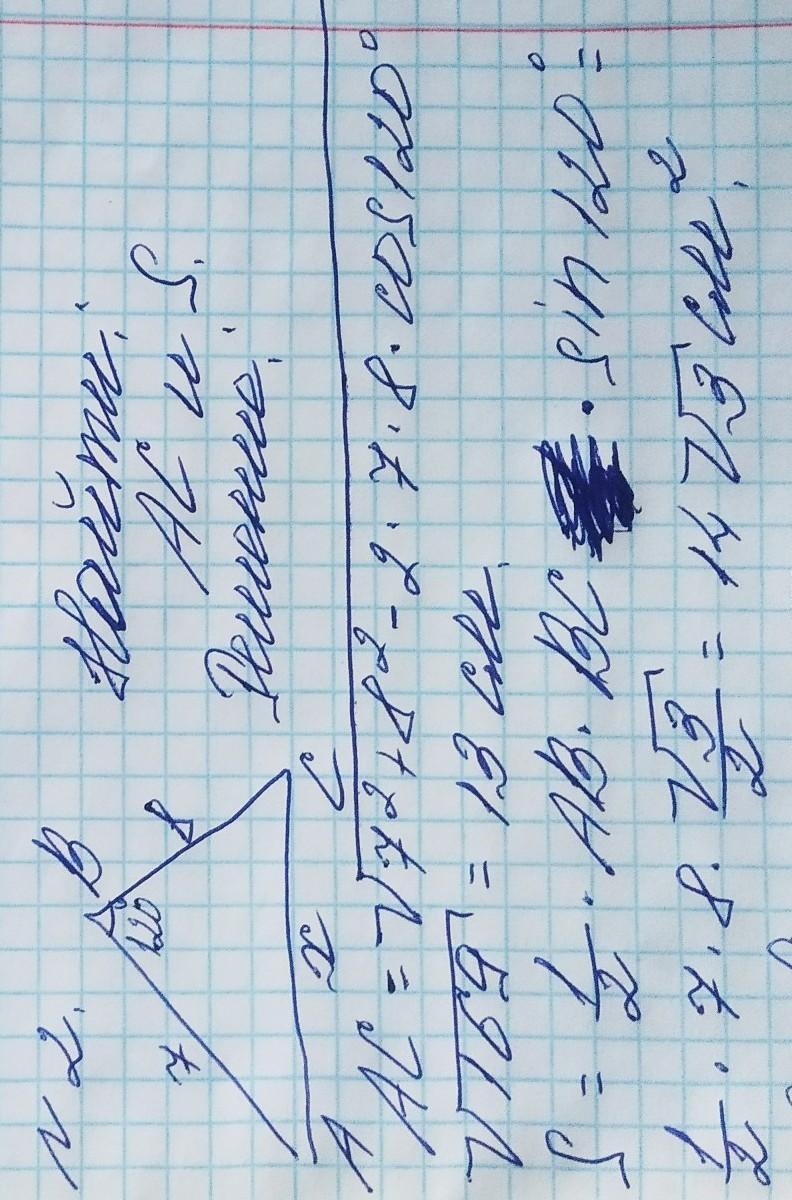 N 2.
B
Найти:
7
120
8
AC и S.
Решение:
A
x
C
AC = √7² + 8² - 2 · 7 · 8 · cos 120°
√169 = 13 см.
S = 1/2 · AB · BC · sin 120° =
1/2 · 7 · 8 · √3/2 = 14√3 см².